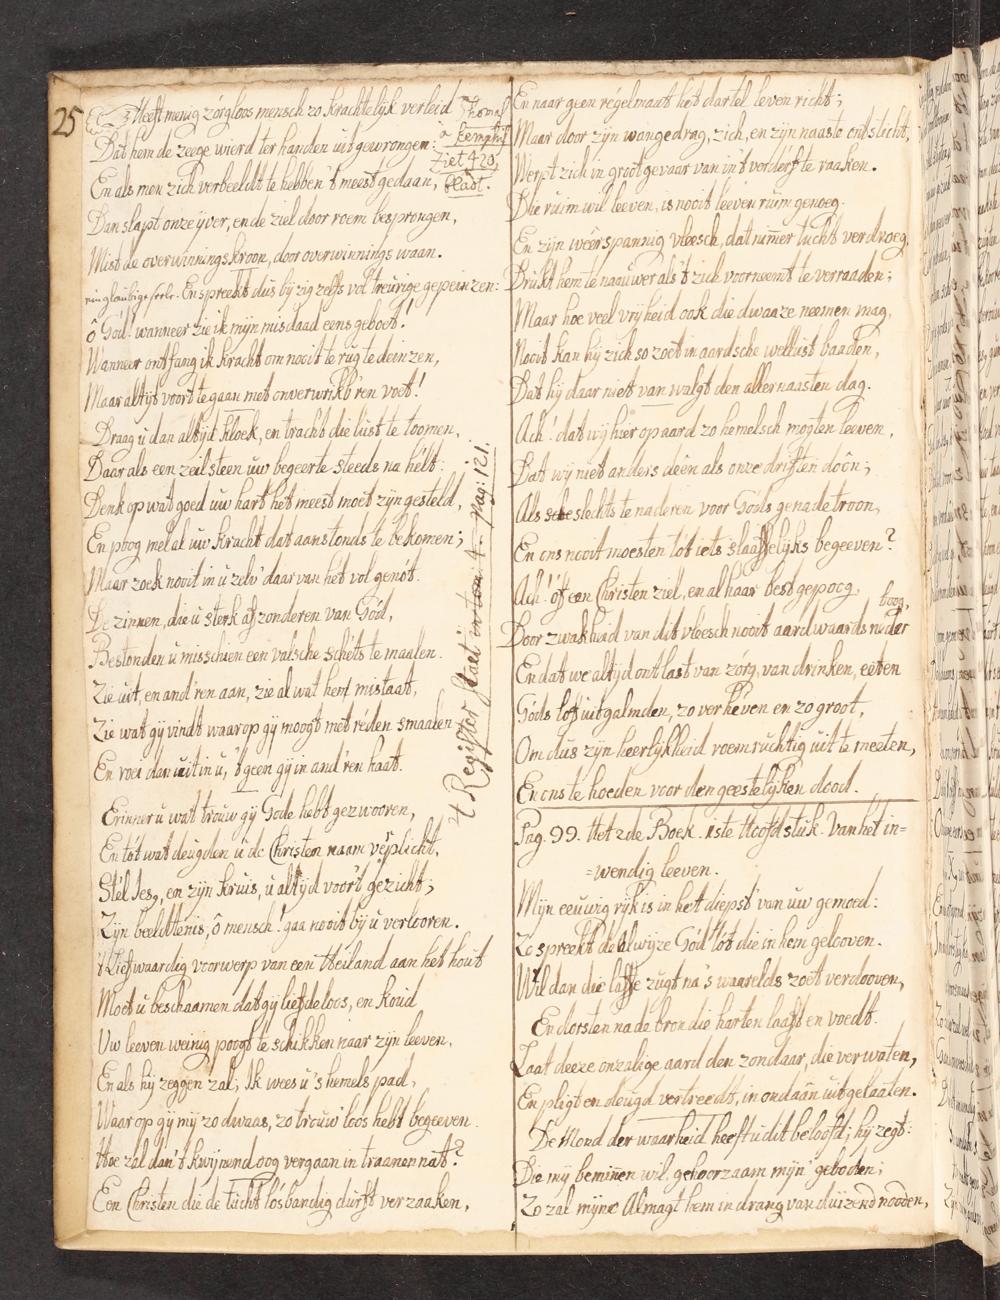 25
Heeft menig zórgloos mensch zo krachtelijk verleid
Thomas
a Kemphis
Ziet 420
bladt.
Dat hem de zeege wierd ter handen uitgewrongen:
En als men zich verbeeldt te hebben 't meest gedaan,
Dan slapt onze ijver, en de ziel door roem besprongen,
Mist de overwinnings kroon, door overwinnings waan.
En spreekt dus bij zig zelfs vol treurige gepeinzen:
ô God! wanneer zie ik mijn misdaad eens geboet!
Wanneer ontfang ik kracht om nooit te rug te deinzen,
Maar altijt voort te gaan met onverwrikb'ren voet!
Draag u dan altijt kloek, en tracht die lust te toomen,
Daar als een zeilsteen uw begeerte steeds na helt:
Denk op wat goed uw hart het meest moet zijn gesteld,
En poog met al uw kracht dat aanstonds te bekomen;
Maar zoek nooit in u zelv' daar van het vol genot.
De zinnen, die u sterk afzonderen van Gód,
Bestonden u misschien een valsche schets te maalen.
Zie uit, en and'ren aan, zie al wat hen mistaat,
Zie wat gij vindt waar op gij moogt met réden smaalen
En roei dan uit in u, 't geen gij in and'ren haat.
Erinner u wat trouw gij Gode hebt gezwooren,
En tót wat deugden u de Christen naam verplicht,
Stél Jes9, en zijn kruis, u altijd voor 't gezicht;
Zijn beeldtenis, ô mensch! gaa nooit bij u verlooren.
't Liefwaardig voorwerp van een Heiland aan het hout
Moet u beschaamen dat gij liefdeloos, en koud
Uw leeven weinig poogt te schikken naar zijn leeven,
En als hij zeggen zal, Ik wees u 's hemels pad,
Waar op gij mij zo dwaas, zo trouw'loos hebt begeeven
Hoe zal dan 't kwijnend oog vergaan in traanen nat?
Een Christen die de tucht losbandig durft verzaaken,
't Register staet in tom: 4. pag: 121.
En naar geen régelmaat het dartel leven richt;
Maar door zijn wangedrag, zich, en zijn naaste ontsticht,
Werpt zich in groot gevaar van in 't verderf te raaken.
Die ruim wil leeven, is nooit leeven ruim genoeg.
En zijn weêrspannig vleesch, dat nim̄er tucht verdroeg,
Drukt hem te naauwer als 't zich voorneemt te verraaden;
Maar hoe veel vrijheid ook die dwaaze neemen mag,
Nooit kan hij zich so zoet in aardsche wellust baaden,
Dat hij daar niet van walgt den allernaasten dag.
Ach! dat wij hier op aard zo hemelsch mogten leeven,
Dat wij niet anders deên als onze driften doôn;
Als slechts te naderen voor Gods genade troon,
En ons nooit moesten tót iets slaaffelijks begeeven?
Ach! óf een Christen ziel, en al haar best gepoog,
Door zwakheid van dit vleesch nooit aardwaards neder
boog,
En dat we altijd ontlast van zórg, van drinken, eeten
Góds lóf uitgalmden, zo verhéven en zo groot,
Om dus zijn heerlijkheid roemruchtig uit te meeten,
En ons te hoeden voor den geestelijken dood.
Pag. 99. Het 2de Boek. 1ste Hoofdstuk. Van het in=
=wendig leeven.
Mijn eeuwig rijk is in het diepst' van uw gemoed:
Zo spreekt de alwijze Gód tót die in hem gelooven.
Wil dan die laffe zugt na 's waarelds zoet verdooven,
En dorsten na de bron die harten laaft en voedt.
Laat deeze onzalige aard den zondaar, die verwaten,
En pligt en deugd vertreedt, in ondaân uitgelaaten.
De Mond der waarheid heeft u dit beloofd; hij zegt:
Die mij beminen wil, gehoorzaam mijn' geboden;
Zo zal mijne Almagt hem in drang van duizend nooden,